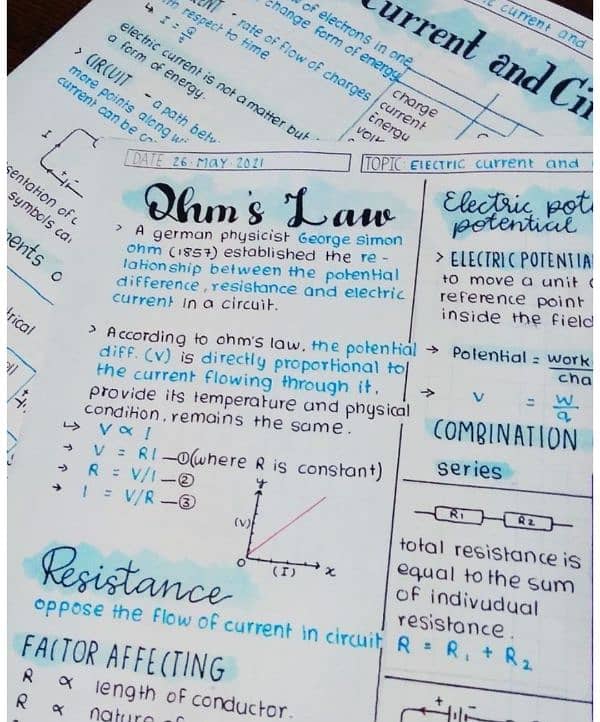 ENT - rate of flow of charges
with respect to time
I = Q/t
of electrons in one
change form of energy
electric current is not a matter but
a form of energy.
> CIRCUIT - a path betw
more points along wi
current can be
Current and Ci
charge
current
Energy
current and
sentation of c
symbols ca
ents o
trical
DATE 26. May. 2021
TOPIC: ElECTRIC current and
Ohm's Law
> A german physicist George simon
ohm (1857) established the re -
lationship between the potential
difference, resistance and electric
current in a circuit.
> According to ohm's law, the potential
diff. (V) is directly proportional to
the current flowing through it,
provide its temperature and physical
condition, remains the same.
↳ V ∝ I
→ V = RI —①(where R is constant)
→ R = V/I —②
→ I = V/R —③
y
(V)
O
(I)
x
Resistance
oppose the flow of current in circuit
FACTOR AFFECTING
R ∝ length of conductor.
R ∝ nature of
Electric pot
potential
> ELECTRIC POTENTIA
to move a unit c
reference point
inside the field
→ Potential = work
cha
→ V = W
q
COMBINATION
series
R1 R2
total resistance is
equal to the sum
of indivudual
resistance.
R = R1 + R2
+ -